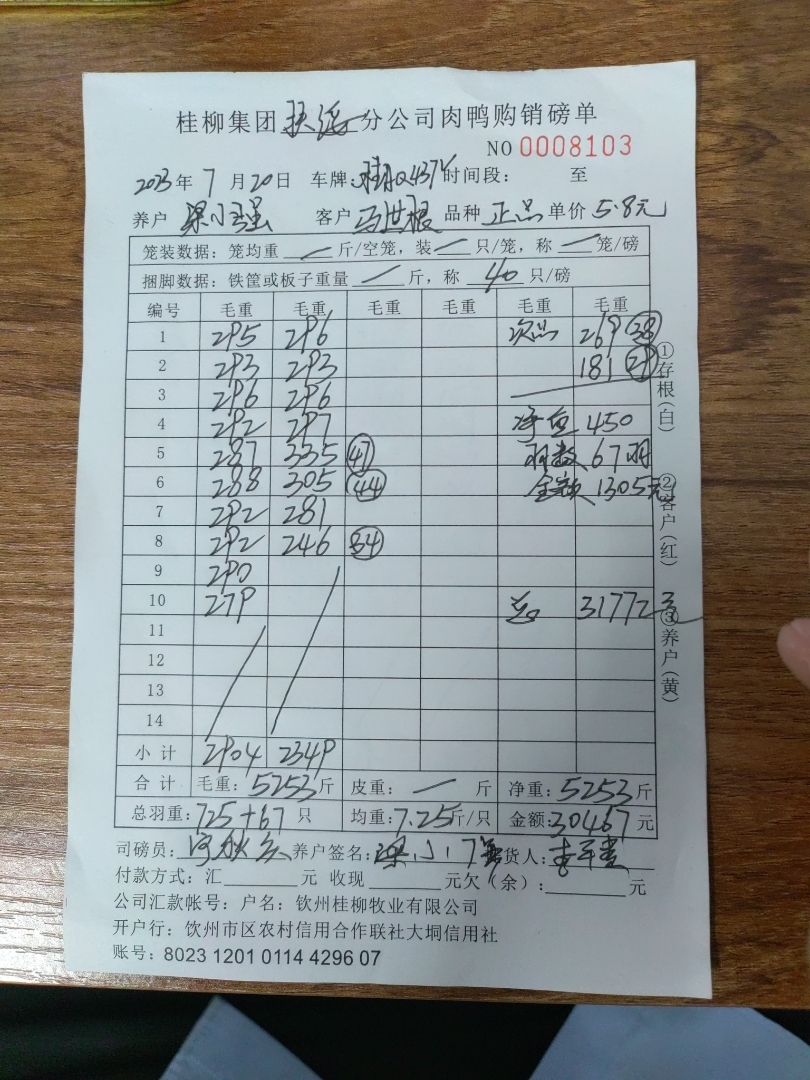 桂柳集团扶绥分公司肉鸭购销磅单
NO 0008103
2023年7月20日 车牌: 时间段: 至
养户 梁小强 客户 马世根 品种 正品 单价 5.8元
笼装数据:笼均重 — 斤/空笼,装 — 只/笼,称 — 笼/磅
捆脚数据:铁筐或板子重量 — 斤,称 40 只/磅
编号 毛重 毛重 毛重 毛重 毛重 毛重
1 295 296 次品 269 38
2 293 293 181 29
3 296 296
4 292 297 净重 450
5 287 335 47 羽数 67羽
6 288 305 44 金额 1305元
7 292 281
8 292 246 34
9 290
10 279 总 31772元
11
12
13
14
小计 2904 2349
合计 毛重:5253斤 皮重: — 斤 净重:5253斤
总羽重:725+67只 均重:7.25斤/只 金额:30467元
司磅员: 养户签名:梁小 货人:
付款方式:汇 元 收现 元欠(余): 元
公司汇款帐号:户名:钦州桂柳牧业有限公司
开户行:钦州市区农村信用合作联社大垌信用社
账号:8023 1201 0114 4296 07
①存根(白) ②客户(红) ③养户(黄)